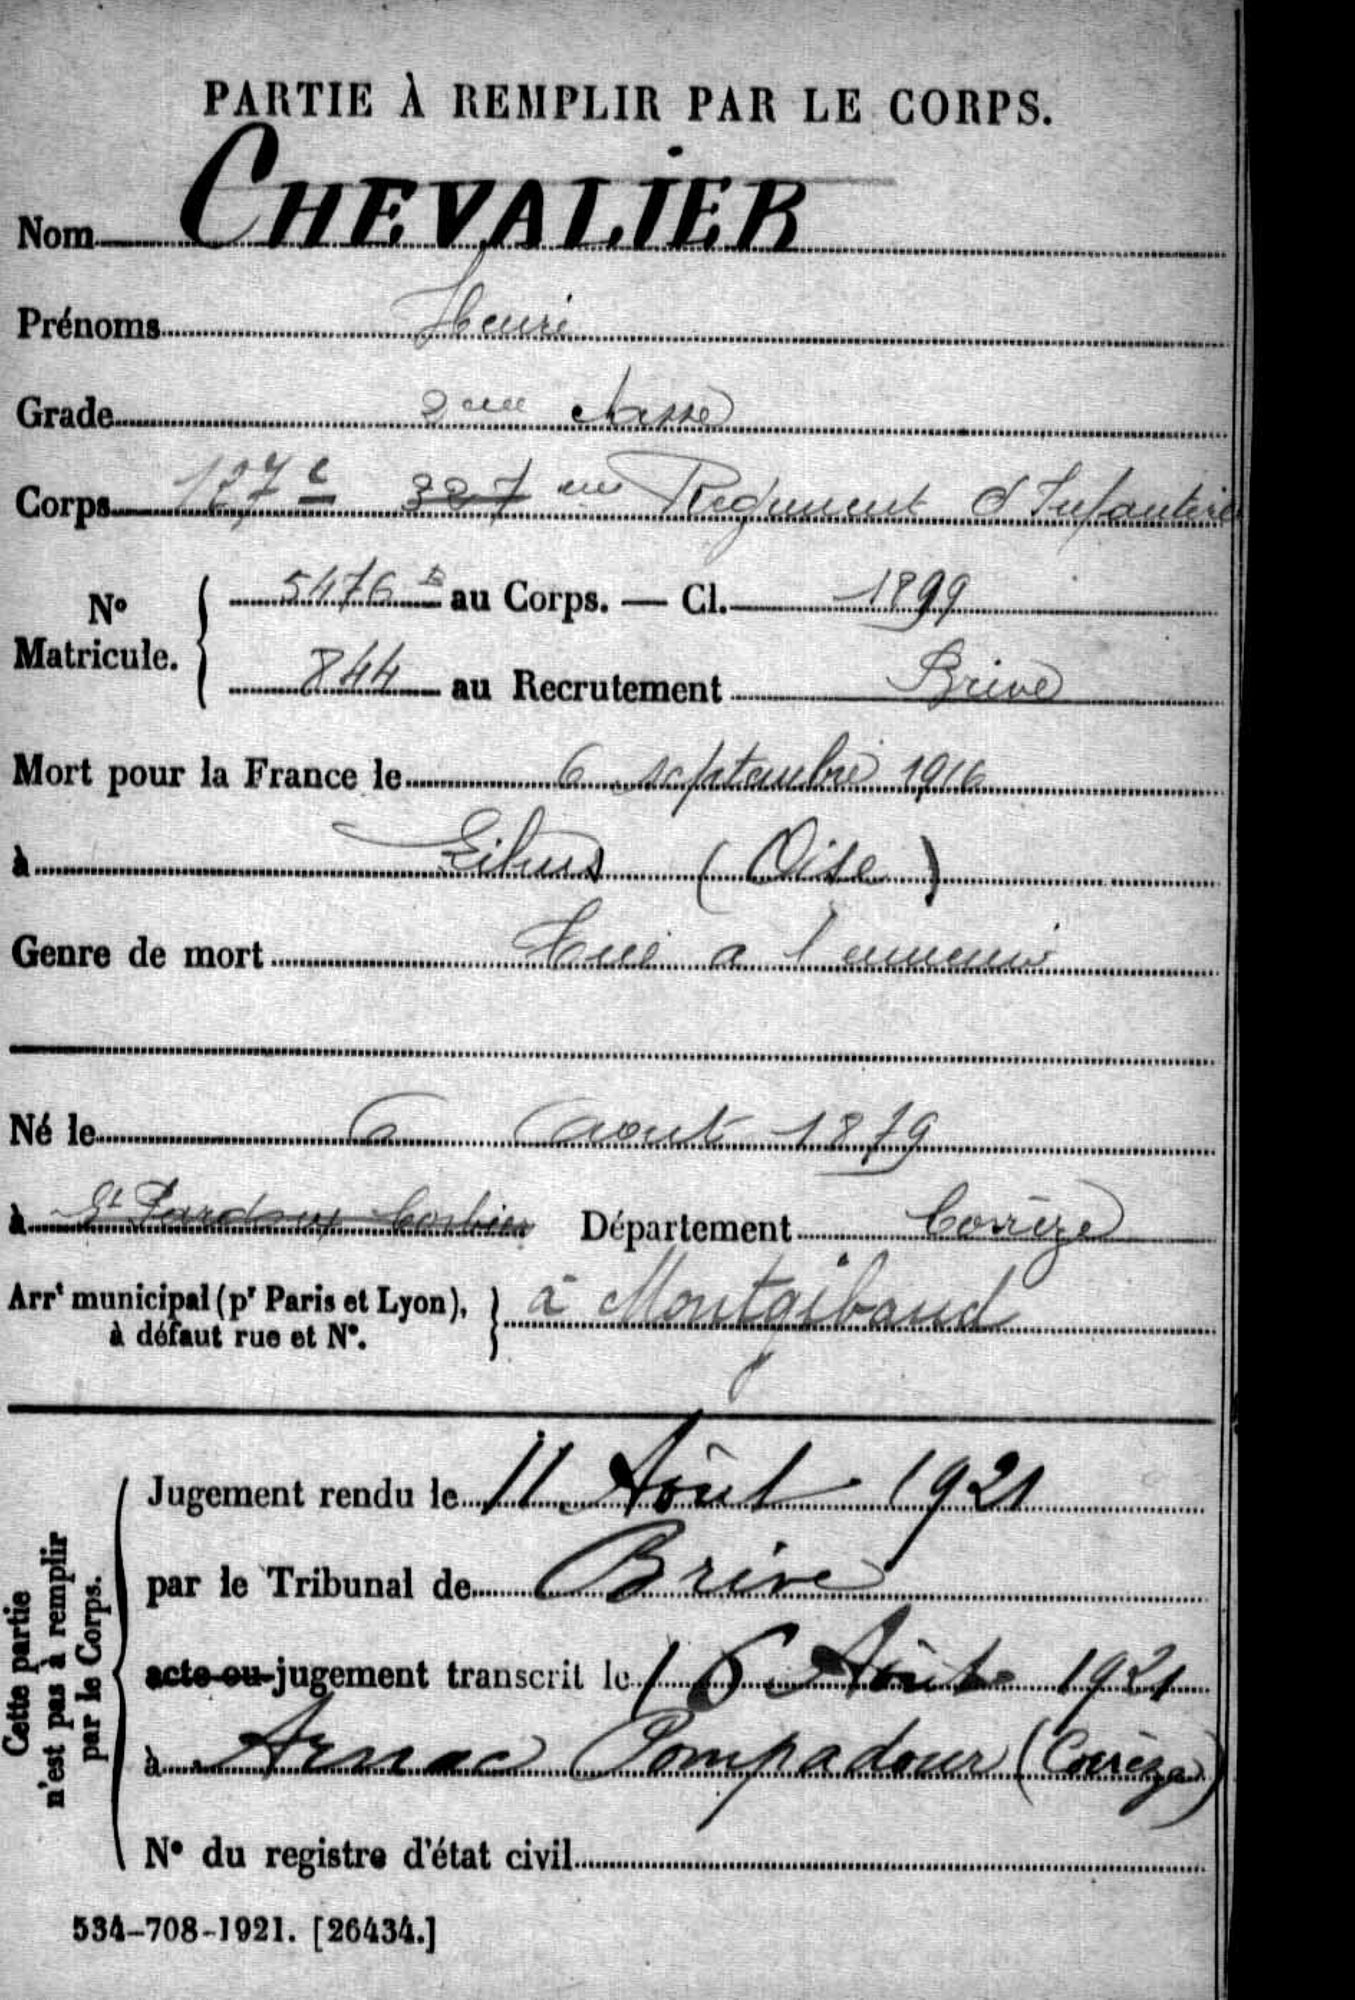 PARTIE À REMPLIR PAR LE CORPS.
Nom CHEVALIER
Prénoms Henri
Grade 2eme classe
Corps 127e 327 eme Regiment d'Infanterie
No Matricule. 5476 au Corps. — Cl. 1899
844 au Recrutement Brive
Mort pour la France le 6 septembre 1916
à (Oise)
Genre de mort Tué a l'ennemi
Né le 6 aout 1879
à St Pardoux Corbier Département Corrèze
Arrt municipal (pr Paris et Lyon), à défaut rue et No. à Montgibaud
Cette partie n'est pas à remplir par le Corps.
Jugement rendu le 11 Aôut 1921
par le Tribunal de Brive
acte ou jugement transcrit le 16 Aôut 1921
à Arnac Pompadour (Corrèze)
No du registre d'état civil
534-708-1921. [26434.]